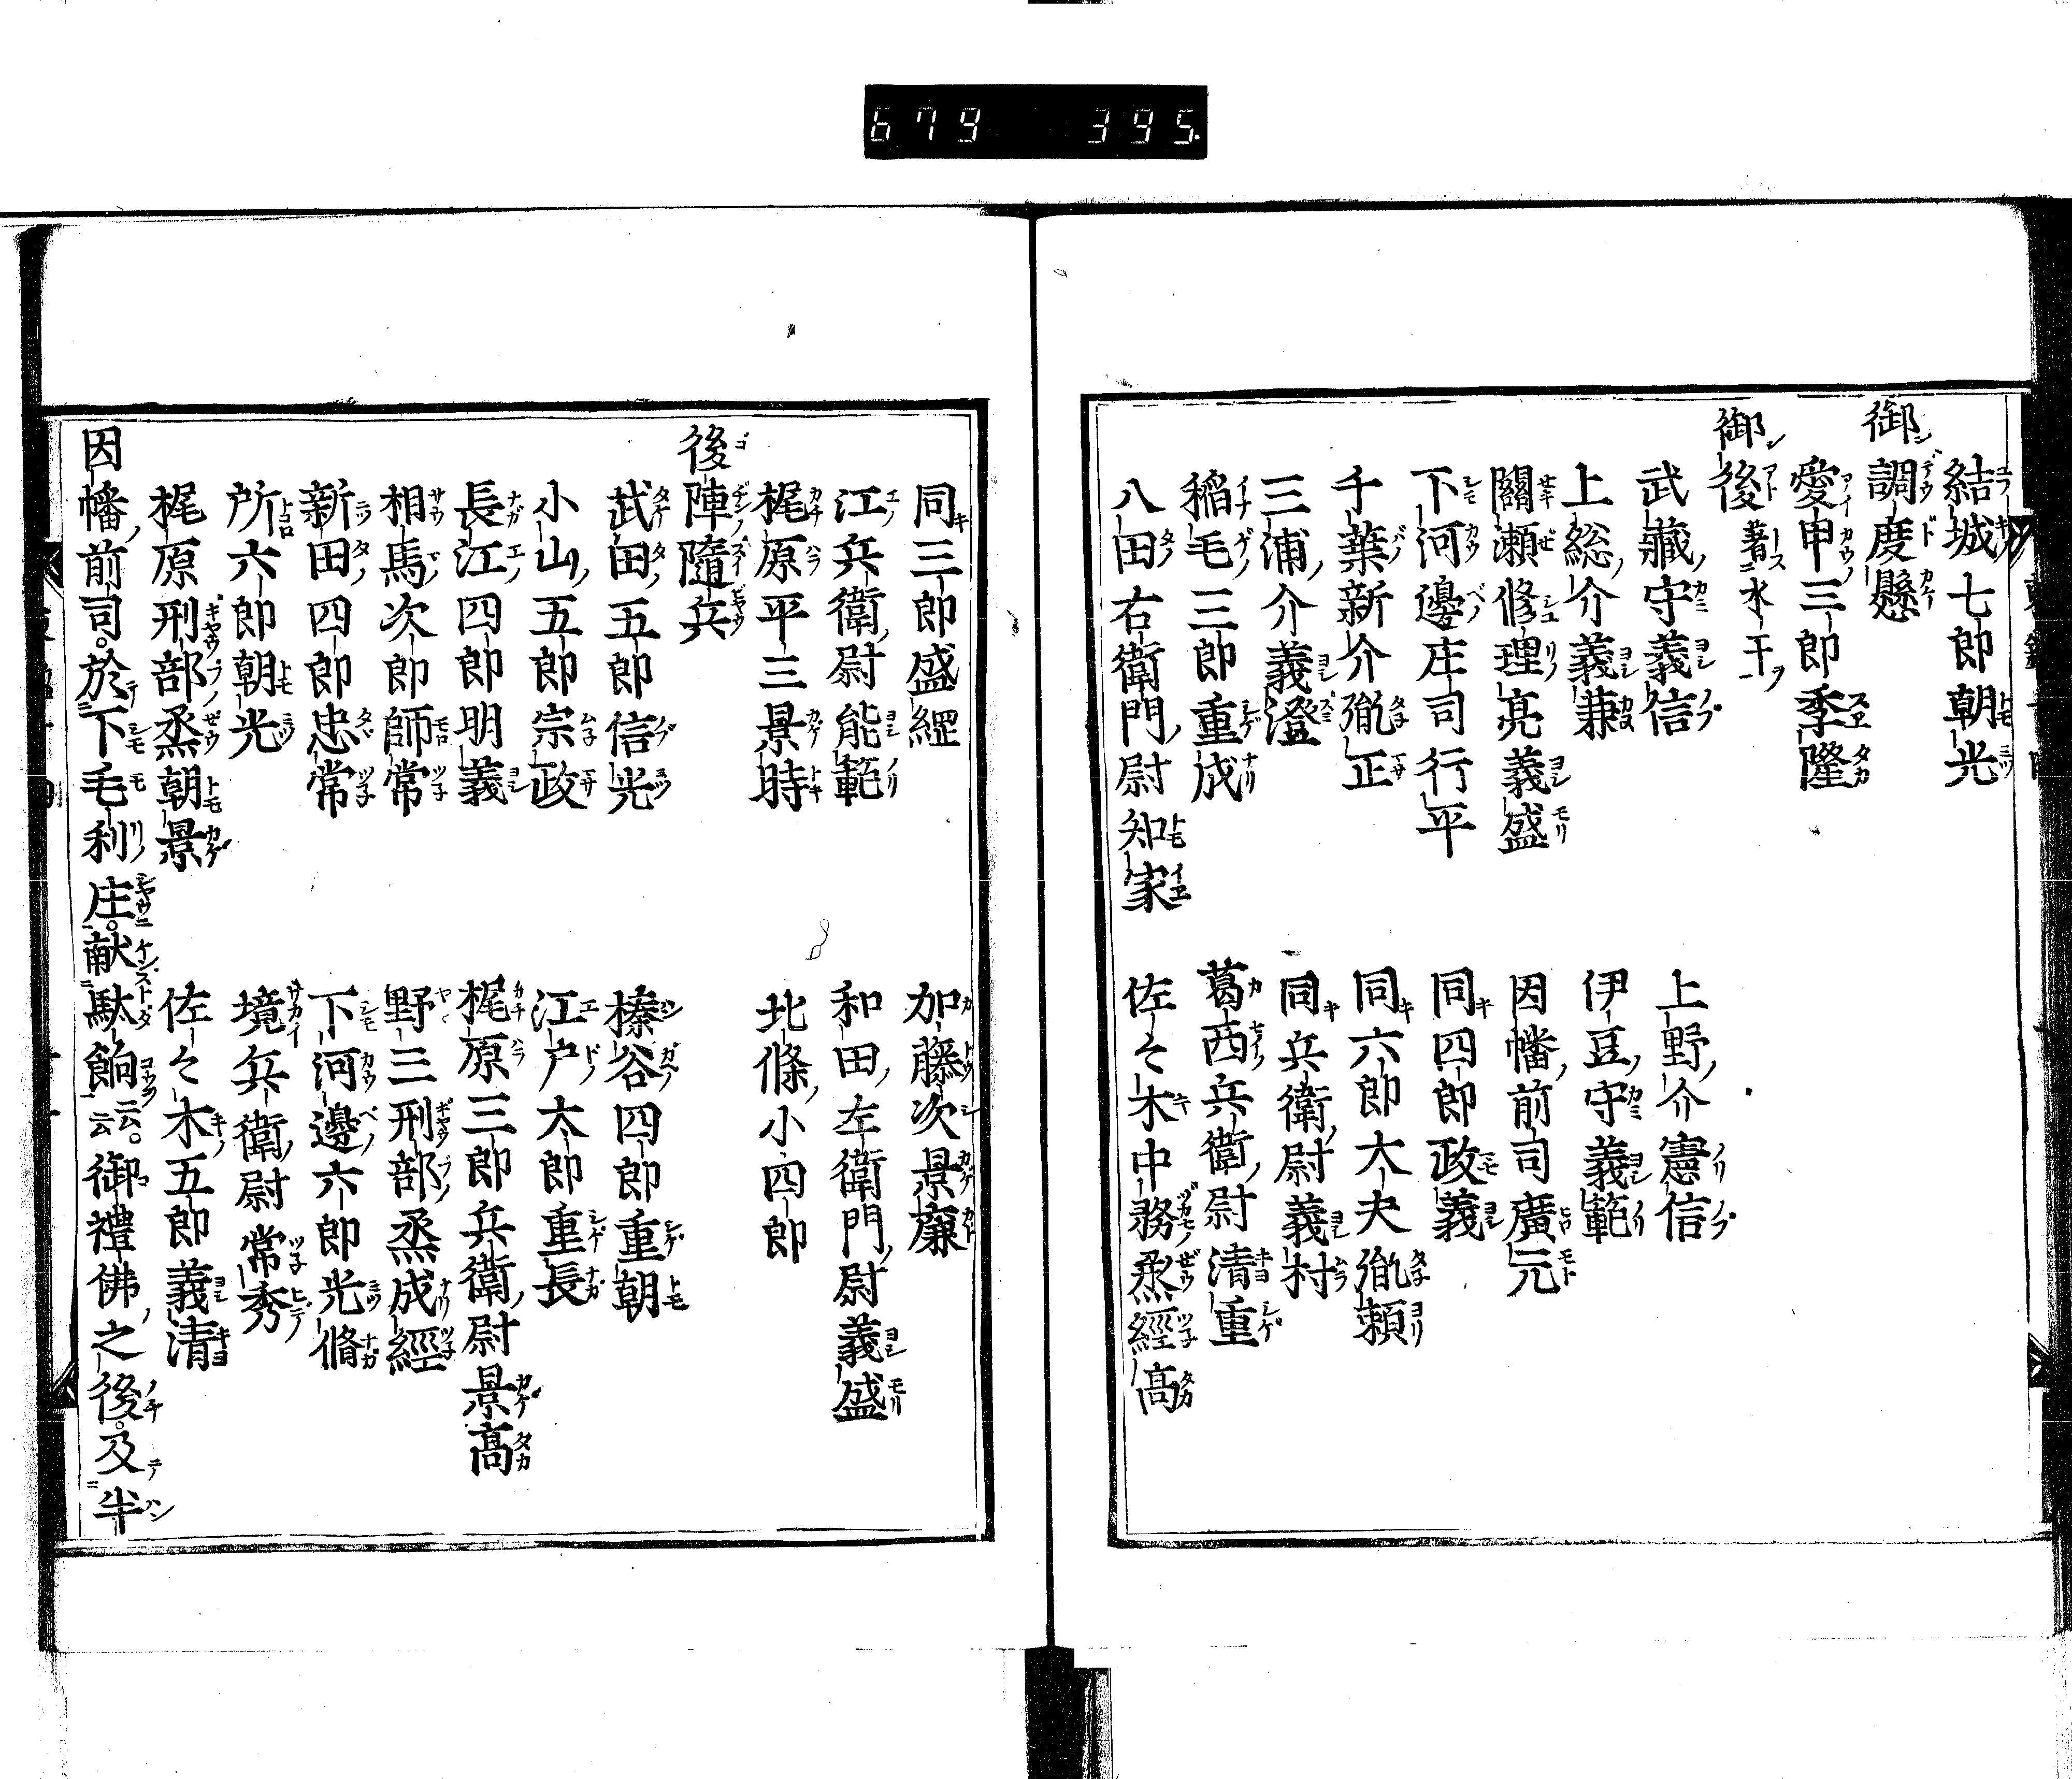 679 395.
結城七郎朝光
御調度懸
愛甲三郎季隆
御後著水干
武藏守義信 上野介憲信
上総介義兼 伊豆守義範
關瀬修理亮義盛 因幡前司廣元
下河邊庄司行平 同四郎政義
千葉新介胤正 同六郎大夫胤頼
三浦介義澄 同兵衛尉義村
稲毛三郎重成 葛西兵衛尉清重
八田右衛門尉知家 佐々木中務烝經髙
同三郎盛綱 加藤次景廉
江兵衛尉能範 和田左衛門尉義盛
梶原平三景時 北條小四郎
後陣隨兵
武田五郎信光 榛谷四郎重朝
小山五郎宗政 江戸太郎重長
長江四郎明義 梶原三郎兵衛尉景髙
相馬次郎師常 野三刑部烝成經
新田四郎忠常 下河邊六郎光脩
所六郎朝光 境兵衛尉常秀
梶原刑部烝朝景 佐々木五郎義清
因幡前司。於下毛利庄。献駄餉云云。御禮佛之後。及半